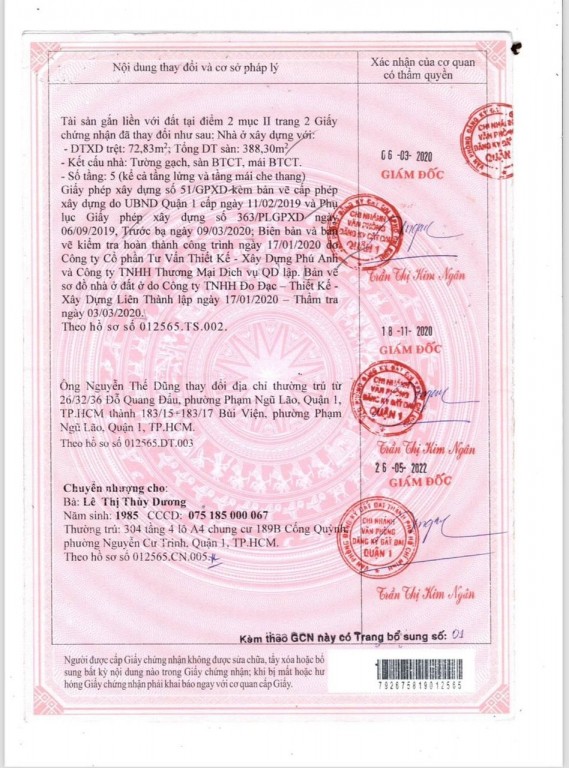 Nội dung thay đổi và cơ sở pháp lý
Xác nhận của cơ quan
có thẩm quyền
Tài sản gắn liền với đất tại điểm 2 mục II trang 2 Giấy
chứng nhận đã thay đổi như sau: Nhà ở xây dựng với:
- DTXD trệt: 72,83m²; Tổng DT sàn: 388,30m²
- Kết cấu nhà: Tường gạch, sàn BTCT, mái BTCT.
- Số tầng: 5 (kể cả tầng lửng và tầng mái che thang)
Giấy phép xây dựng số 51/GPXD kèm bản vẽ cấp phép
xây dựng do UBND Quận 1 cấp ngày 11/02/2019 và Phụ
lục Giấy phép xây dựng số 363/PLGPXD ngày
06/09/2019, Trước bạ ngày 09/03/2020; Biên bản và bản
vẽ kiểm tra hoàn thành công trình ngày 17/01/2020 do
Công ty Cổ phần Tư Vấn Thiết Kế - Xây Dựng Phú Anh
và Công ty TNHH Thương Mại Dịch vụ QD lập. Bản vẽ
sơ đồ nhà ở đất ở do Công ty TNHH Đo Đạc – Thiết Kế -
Xây Dựng Liên Thành lập ngày 17/01/2020 – Thẩm tra
ngày 03/03/2020.
Theo hồ sơ số 012565.TS.002.
06-03-2020
GIÁM ĐỐC
CHI NHÁNH
VĂN PHÒNG
ĐĂNG KÝ ĐẤT ĐAI
QUẬN 1
Trần Thị Kim Ngân
Ông Nguyễn Thế Dũng thay đổi địa chỉ thường trú từ
26/32/36 Đỗ Quang Đẩu, phường Phạm Ngũ Lão, Quận 1,
TP.HCM thành 183/15+183/17 Bùi Viện, phường Phạm
Ngũ Lão, Quận 1, TP.HCM.
Theo hồ sơ số 012565.DT.003
18-11-2020
GIÁM ĐỐC
CHI NHÁNH
VĂN PHÒNG
ĐĂNG KÝ ĐẤT ĐAI
QUẬN 1
Trần Thị Kim Ngân
Chuyển nhượng cho:
Bà: Lê Thị Thùy Dương
Năm sinh: 1985 CCCD: 075 185 000 067
Thường trú: 304 tầng 4 lô A4 chung cư 189B Cống Quỳnh,
phường Nguyễn Cư Trinh, Quận 1, TP.HCM.
Theo hồ sơ số 012565.CN.005.
26-05-2022
GIÁM ĐỐC
CHI NHÁNH
VĂN PHÒNG
ĐĂNG KÝ ĐẤT ĐAI
QUẬN 1
Trần Thị Kim Ngân
Kèm theo GCN này có Trang bổ sung số: 01
Người được cấp Giấy chứng nhận không được sửa chữa, tẩy xóa hoặc bổ
sung bất kỳ nội dung nào trong Giấy chứng nhận; khi bị mất hoặc hư
hỏng Giấy chứng nhận phải khai báo ngay với cơ quan cấp Giấy.
792675818012565